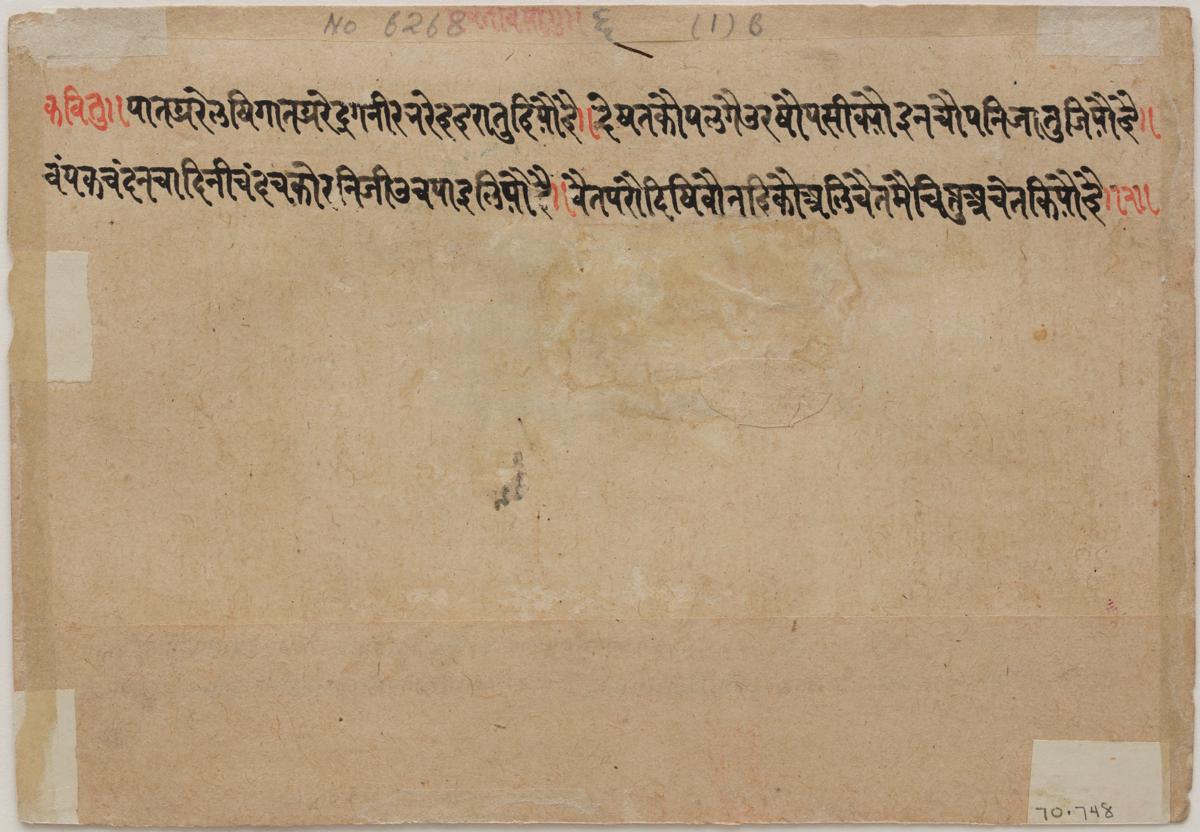 No 6268 ६ (1) 6
कवितु॥ पातप्ररेलषिगातप्ररेद्रुगनीरनरेहहरातुहियौहै॥ देषतकौपलुगैउरषौपसीक्यौइनचौपनिजातुजियौहै॥
चंपकचंदनचादिनीचंदचकोरनिजीउचपाइलियौहै॥ चैतपरौदिषिवौनहिकौअलिचैतमैचितुअचेनकियौहै॥२॥
70.748